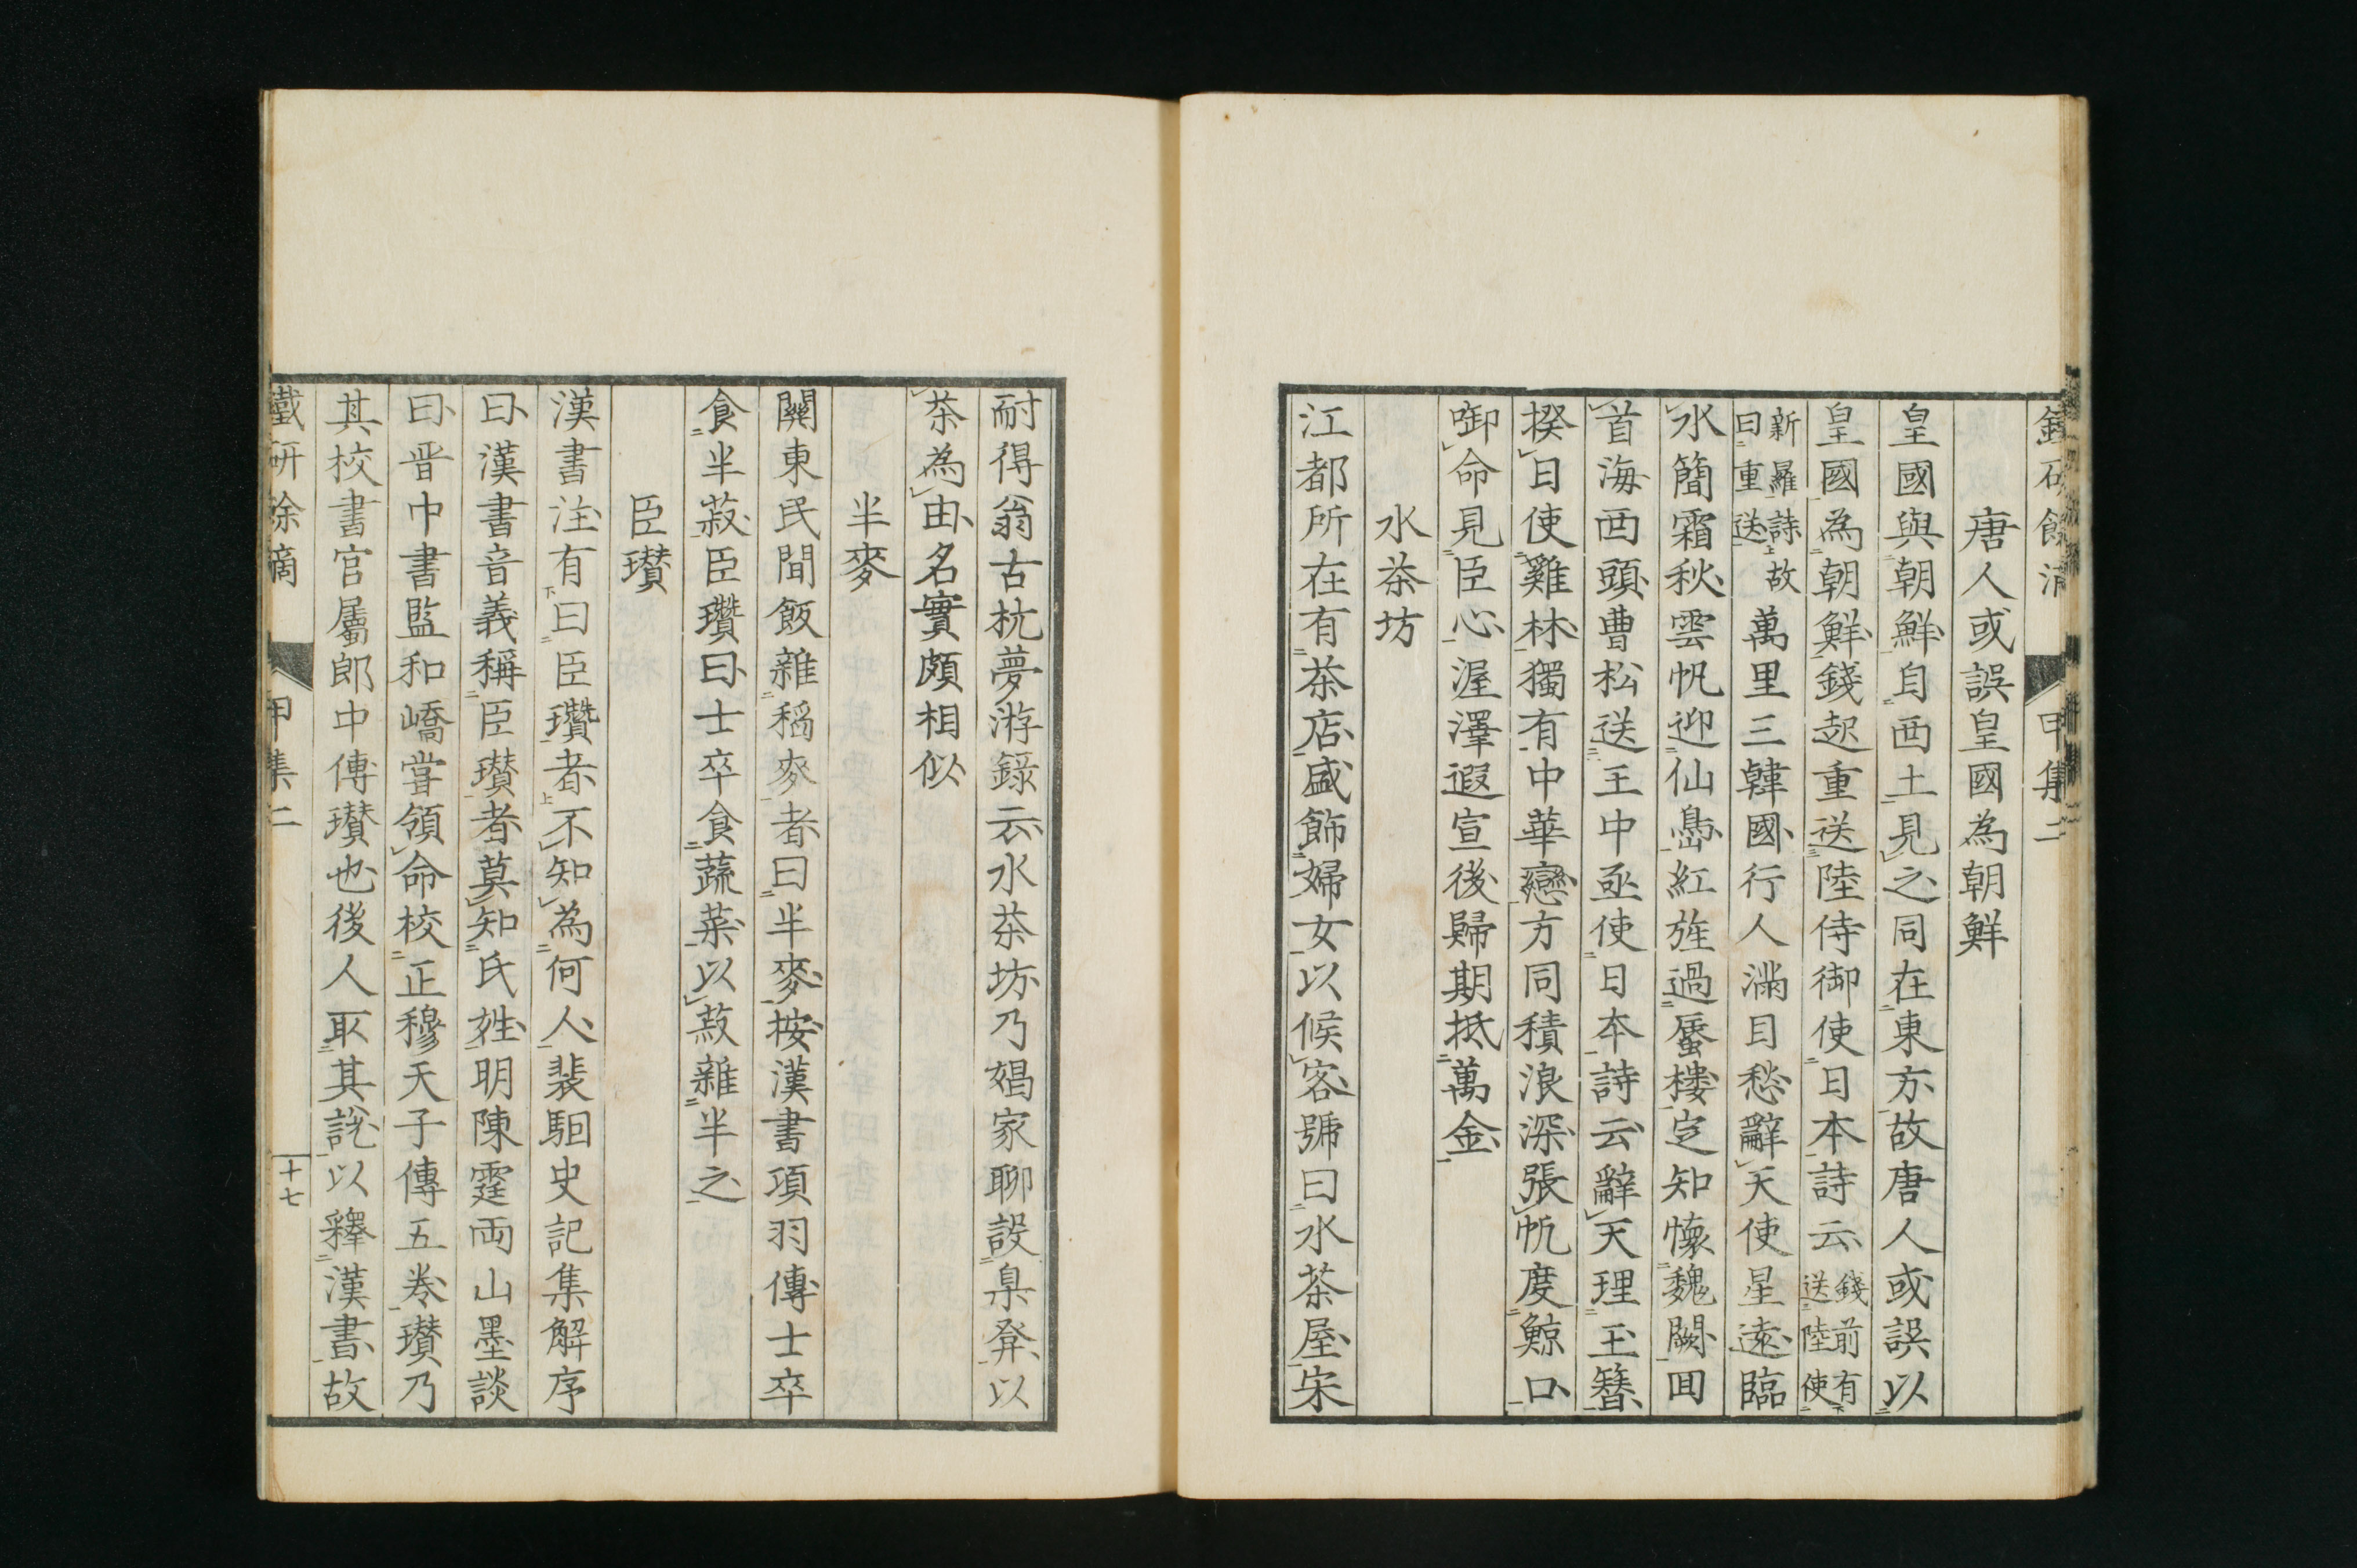 唐人或誤皇國為朝鮮
皇國與朝鮮自西土見之同在東方故唐人或誤以
皇國為朝鮮錢起重送陸侍御使日本詩云錢前有送陸使
新羅詩故曰重送萬里三韓國行人滿目愁辭天使星遠臨
水簡霜秋雲帆迎仙嶌紅旌過蜃樓定知懷魏闕回
首海西頭曹松送王中丞使日本詩云辭天理玉簪
揆日使雞林獨有中華戀方同積浪深張帆度鯨口
啣命見臣心渥澤遐宣後歸期抵萬金
水茶坊
江都所在有茶店盛飾婦女以候客號曰水茶屋宋
耐得翁古杭夢游錄云水茶坊乃娼家聊設桌凳以
茶為由名實頗相似
半麥
關東民間飯雜稻麥者曰半麥按漢書項羽傳士卒
食半菽臣瓚曰士卒食蔬菜以菽雜半之
臣瓚
漢書注有曰臣瓚者不知為何人裴駰史記集解序
曰漢書音義稱臣瓚者莫知氏姓明陳霆兩山墨談
曰晋中書監和嶠嘗領命校正穆天子傳五卷瓚乃
其校書官屬郎中傳瓚也後人取其說以釋漢書故
鐵研餘滴 甲集二 十七